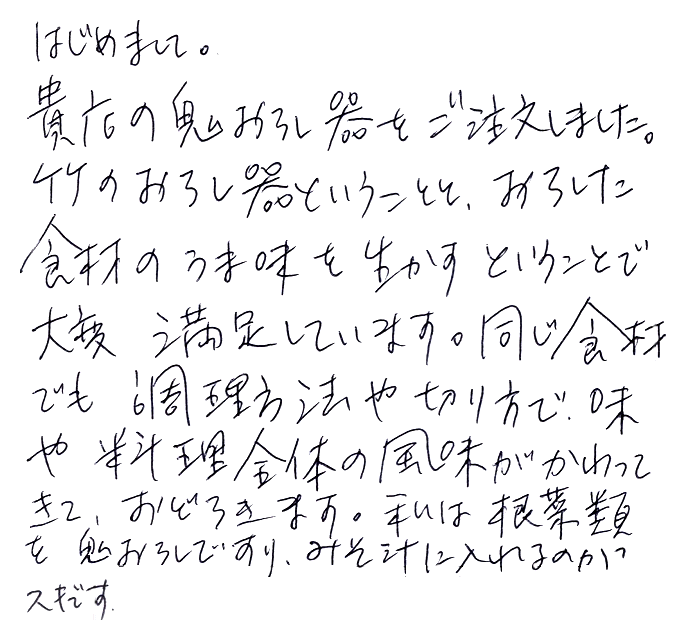 はじめまして。
貴店の鬼おろし器をご注文しました。
竹のおろし器ということと、おろした
食材のうま味を生かすということで
大変 満足しています。同じ食材
でも 調理方法や切り方で、味
や 料理全体の風味がかわって
きて、おどろきます。私は根菜類
を 鬼おろしですり、みそ汁に入れるのが
スキです。